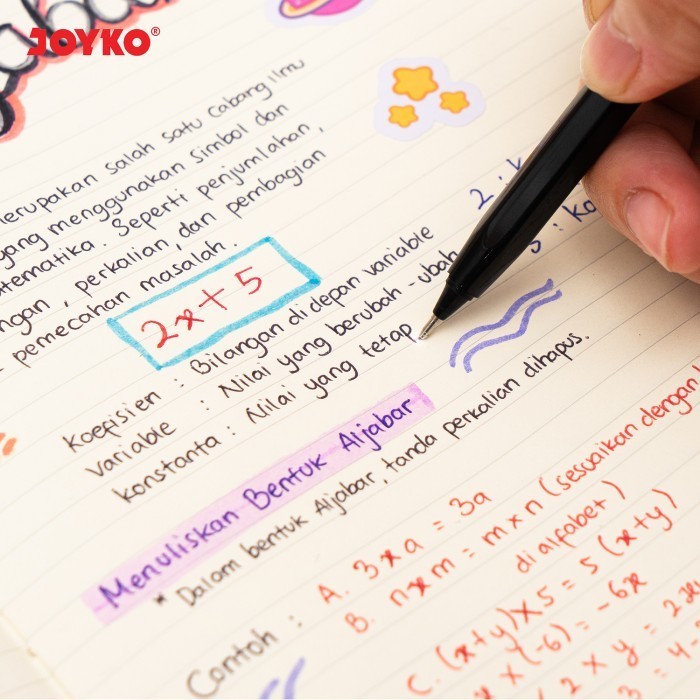 JOYKO®
merupakan salah satu cabang ilmu
yang menggunakan simbol dan
matematika. Seperti penjumlahan,
perkalian, dan pembagian
pemecahan masalah.
2x + 5
Koefisien : Bilangan di depan variable
Variable : Nilai yang berubah - ubah
Konstanta : Nilai yang tetap
Menuliskan Bentuk Aljabar
* Dalam bentuk Aljabar, tanda perkalian dihapus.
Contoh : A. 3 x a = 3a
B. n x m = m x n (sesuaikan dengan
di alfabet)
C. (x+y) x 5 = 5 (x+y)
x (-6) = -6x
2 x y =